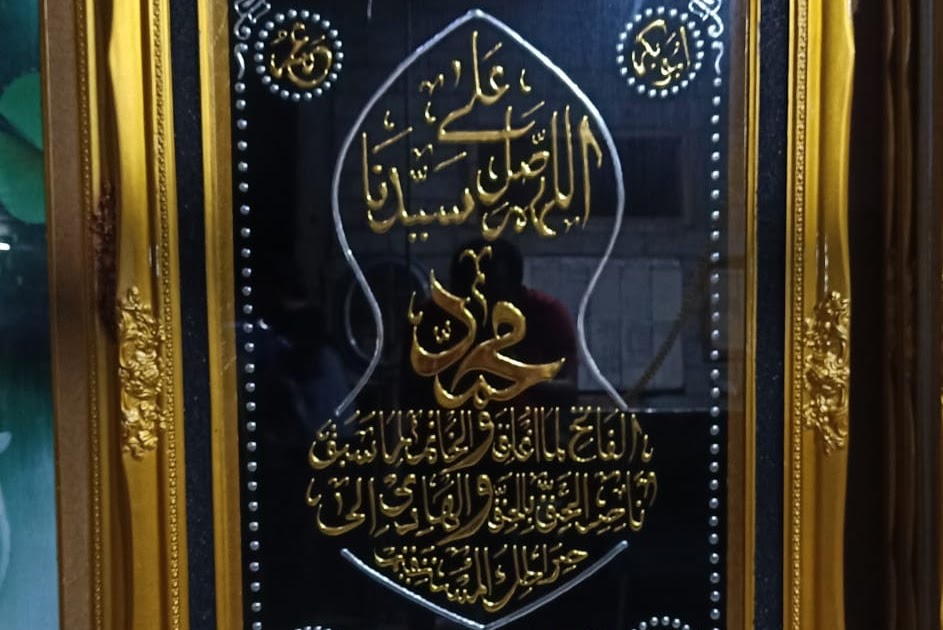 أبو بكر
عمر
اللهم صل على سيدنا
محمد
الفاتح لما اغلق والخاتم لما سبق
ناصر الحق بالحق والهادي الى
صراطك المستقيم